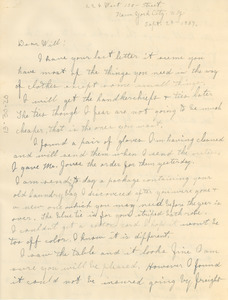 New York City, N.Y.
Dear Will:
I have your last letter it seems you
have most of the things you need in the way
of clothes except some small things.
I will get the handkerchiefs & ties later
The ties though I fear are not going to be much
cheaper than in the one you
I found a pair of gloves I'm having cleaned
and will send them when I send the
I gave Mr. Jones the order for them yesterday.
I am sending to day a package containing your
old laundry bag I discovered after you were gone &
a new one which you may need before the year is
over. The blue tie is for your striped bathrobe.
I couldn't get a
too off color. I know it is different.
I saw the table and it looks fine I am
sure you will be pleased. However I found
it could not be insured going by freight